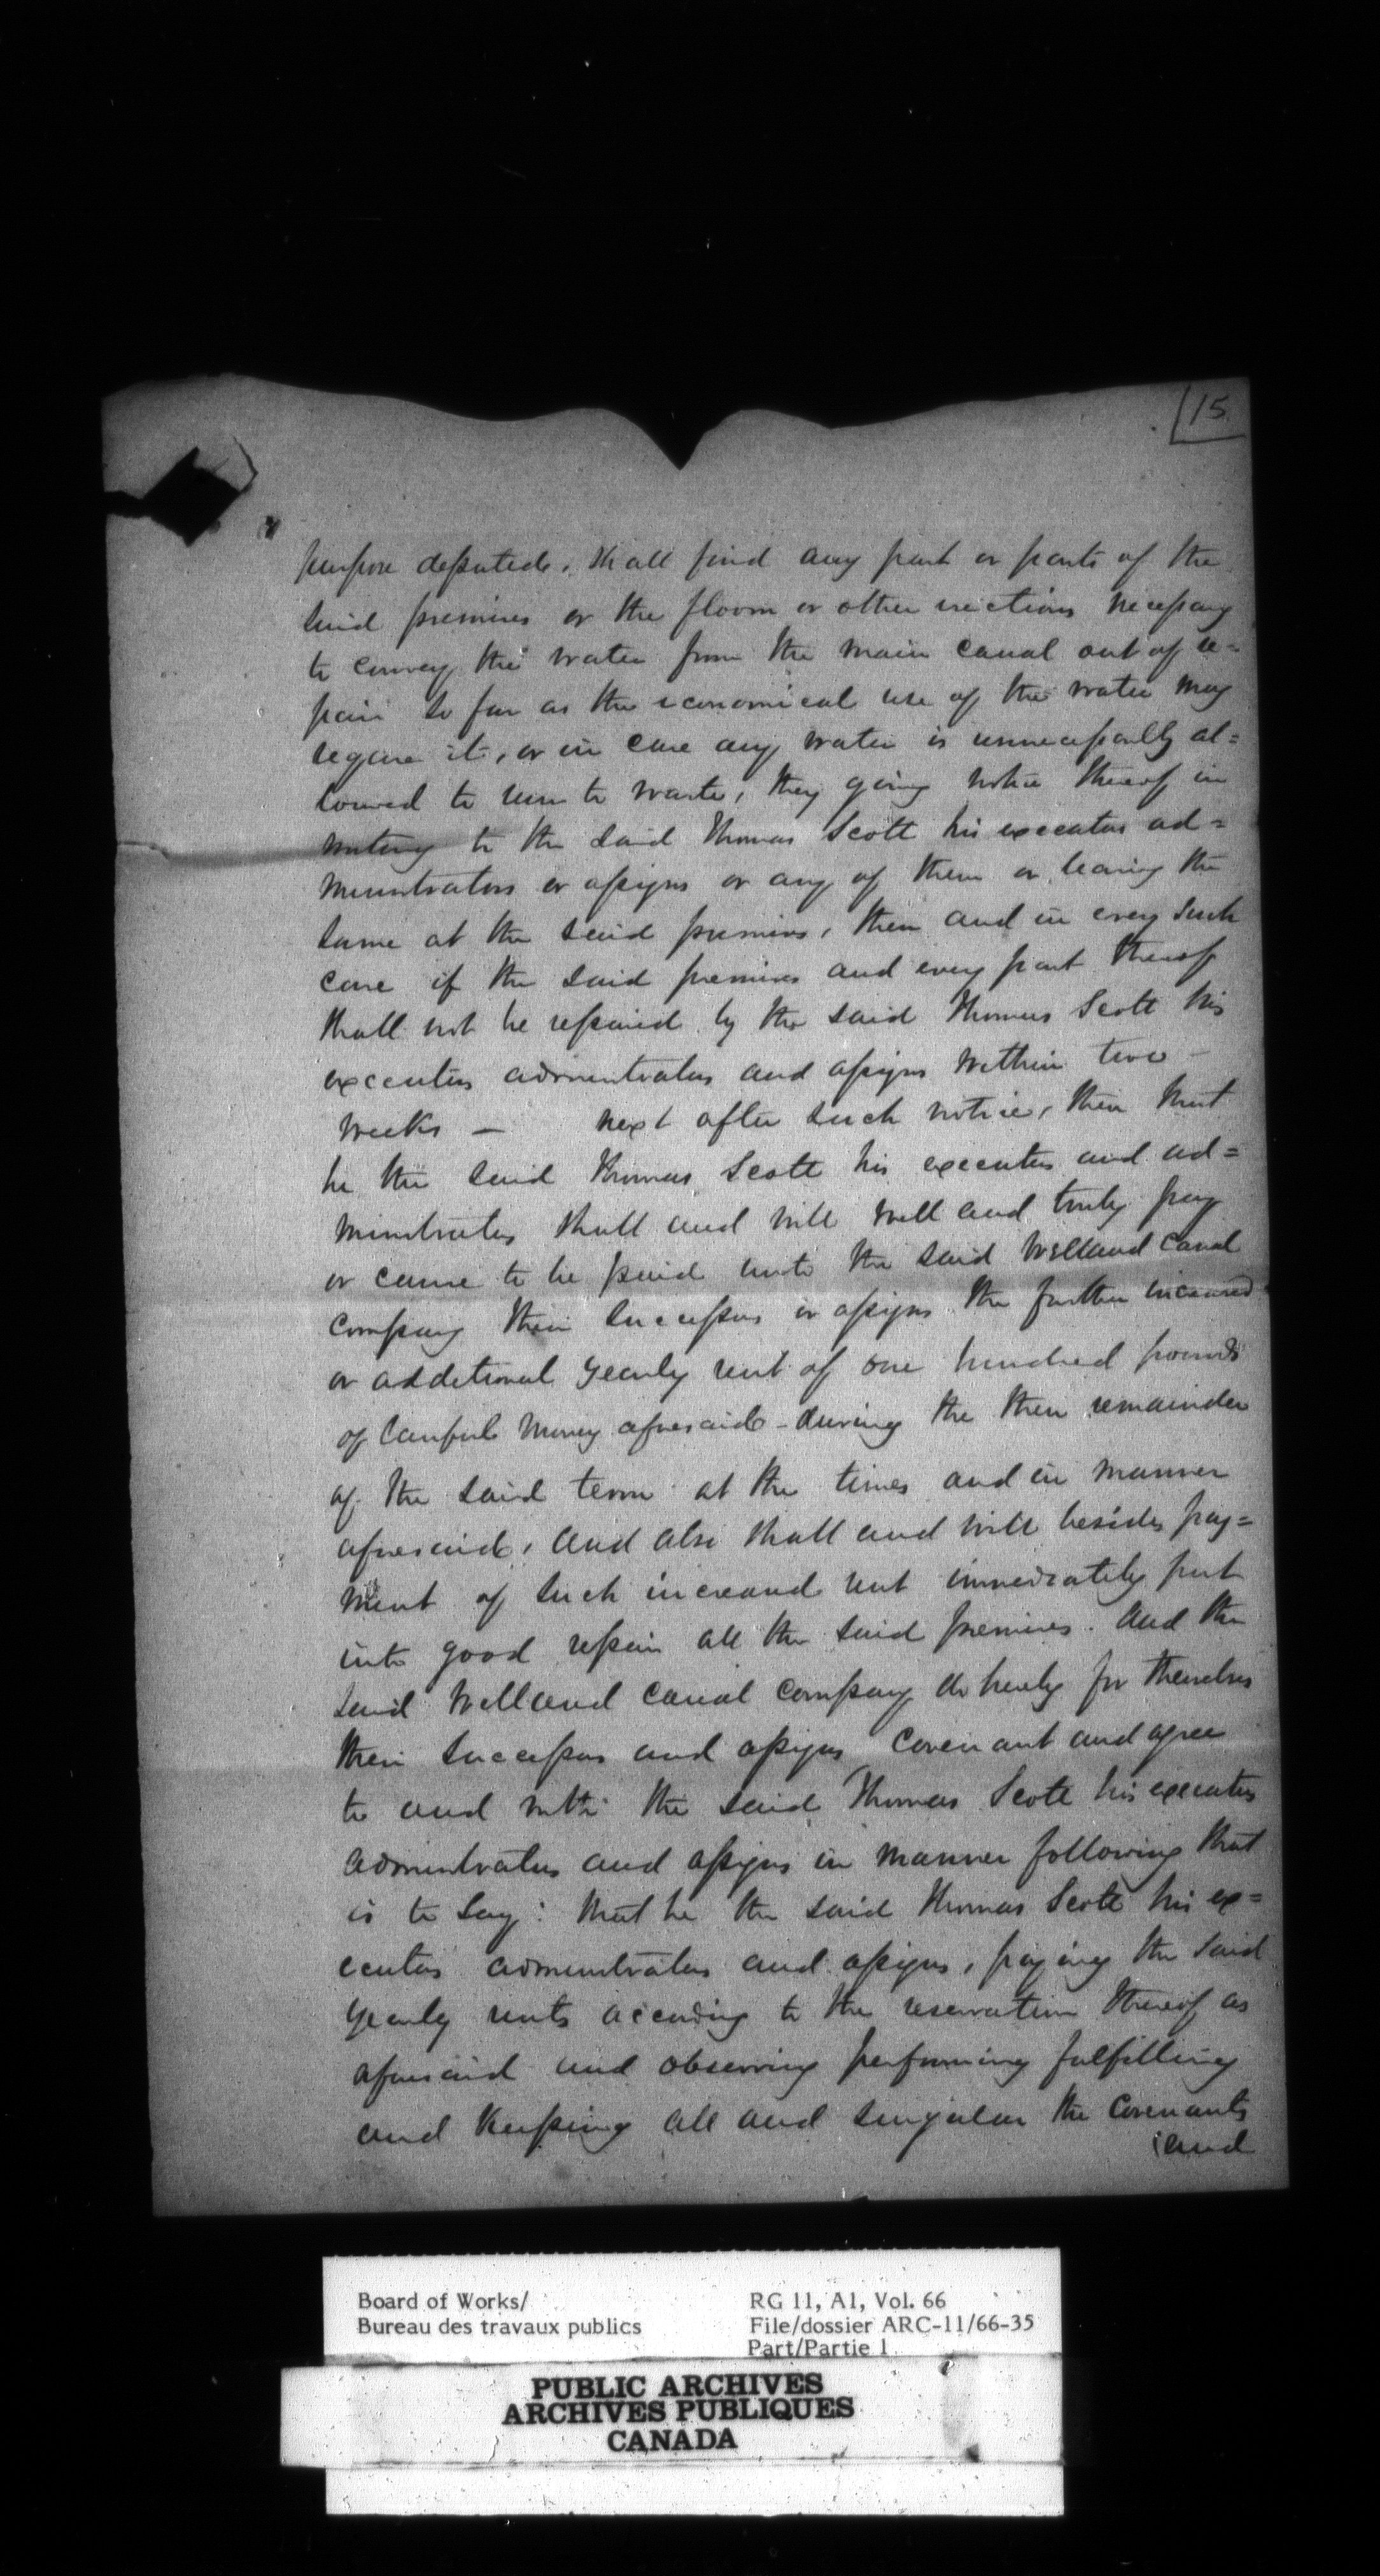 15
purpose deputed, shall find any part or parts of the
said premises or the floom or other erections necessary
to convey the water from the main canal out of re=
pair so far as the economical use of the water may
require it, or in case any water is unnecessarily al=
lowed to run to waste, they giving notice thereof in
writing to the said Thomas Scott his executors ad=
ministrators or assigns or any of them or leaving the
same at the said premises, then and in every such
case if the said premises and every part thereof
shall not be repaired by the said Thomas Scott his
executors administrators and assigns within two -
weeks - next after such notice, then that
he the said Thomas Scott his executors and ad=
ministrators shall and will well and truly pay
or cause to be paid unto the said Welland Canal
Company their successors or assigns the further increased
or additional yearly rent of one hundred pounds
of lawful money aforesaid - during the then remainder
of the said term at the times and in manner
aforesaid, and also shall and will besides pay=
ment of such increased rent immediately put
into good repair all the said premises. And the
said Welland Canal Company do hereby for themselves
their successors and assigns covenant and agree
to and with the said Thomas Scott his executors
administrators and assigns in manner following that
is to say: that he the said Thomas Scott his ex=
ecutors administrators and assigns, paying the said
yearly rents according to the reservation thereof as
aforesaid and observing performing fulfilling
and keeping all and singular the covenants
and
Board of Works/
Bureau des travaux publics
RG 11, A1, Vol. 66
File/dossier ARC-11/66-35
Part/Partie 1
PUBLIC ARCHIVES
ARCHIVES PUBLIQUES
CANADA